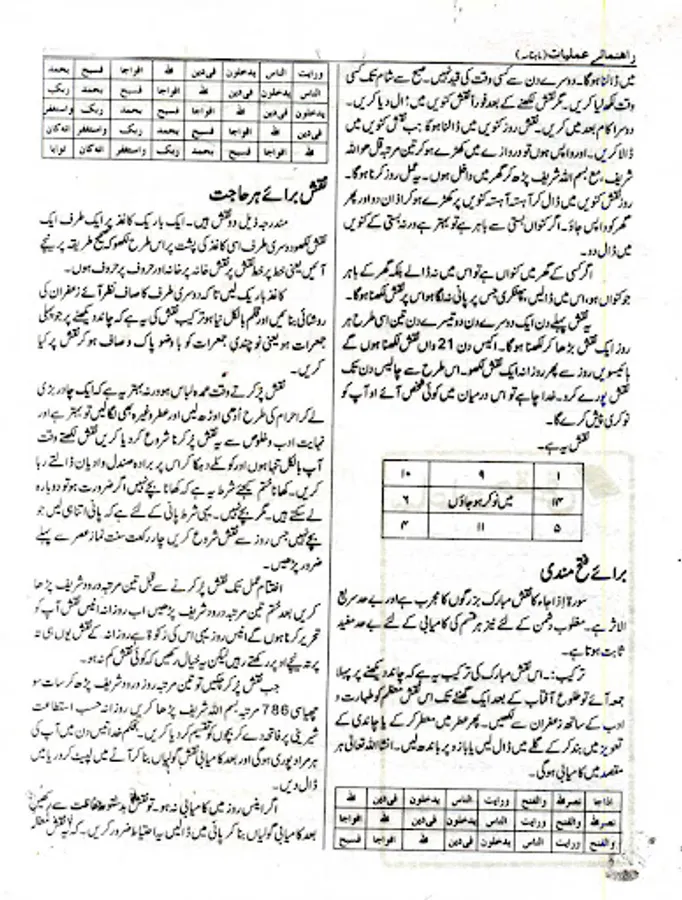 راہنمائے عملیات (ماہنامہ)
میں ڈالنا ہوگا۔ دوسرے دن سے کسی وقت کی قید نہیں۔ صبح سے شام تک کسی
وقت لکھ لیا کریں۔ مگر نقش لکھنے کے بعد فوراً نقش کنویں میں ڈال دیا کریں۔
دوسرا کام بعد میں کریں۔ نقش روز کنویں میں ڈالنا ہوگا جب نقش کنویں میں
ڈالا کریں۔ اور واپس ہوں تو دروازے میں کھڑے ہو کر تین مرتبہ قل ھو اللہ
شریف، مع بسم اللہ شریف پڑھ کر گھر میں داخل ہوں۔ یہ عمل روز کرنا ہوگا۔
روز نقش کنویں میں ڈال کر آہستہ آہستہ کنویں پر کھڑے ہو کر اذان دو اور پھر
گھر کو واپس جاؤ۔ اگر کنواں بستی سے باہر ہے تو بہتر ہے ورنہ بستی کے کنویں
میں ڈال دو۔
اگر کسی کے گھر میں کنواں ہے تو اس میں نہ ڈالے بلکہ گھر کے باہر
جو کنواں ہو، اس میں ڈالیں، پھٹکری جس پر پانی نہ لگا ہو اس پر نقش لکھنا ہوگا۔
یہ نقش پہلے دن ایک دوسرے دن دو تیسرے دن تین اسی طرح ہر
روز ایک نقش بڑھا کر لکھنا ہوگا۔ اکیس دن 21 واں نقش لکھنا ہوں گے
بائیسویں روز سے پھر روزانہ ایک نقش لکھو۔ اس طرح سے چالیس دن تک
نقش پورے کرو۔ خدا چاہے تو اس درمیان میں کوئی شخص آئے او آپ کو
نوکری پیش کرے گا۔
نقش یہ ہے۔
۱۰ ۹ ۱
۶ میں نوکر ہو جاؤں ۱۴
۴ ۱۱ ۵
برائے فتح مندی
سورۃ اذا جاء کا نقش مبارک بزرگوں کا مجرب ہے اور بے حد سریع
الاثر ہے۔ مغلوب دشمن کے لئے نیز ہر قسم کی کامیابی کے لئے بے حد مفید
ثابت ہوتا ہے۔
ترکیب:۔ اس نقش مبارک کی ترکیب یہ ہے کہ چاند دیکھنے پر پہلا
جمعہ آئے تو طلوع آفتاب کے بعد ایک گھنٹے تک اس نقش معظم کو طہارت و
ادب کے ساتھ زعفران سے لکھیں۔ پھر عطر میں معطر کر کے یا چاندی کے
تعویز میں بند کر کے گلے میں ڈال لیں یا بازو پر باندھ لیں۔ انشاءاللہ تعالیٰ ہر
مقصد میں کامیابی ہوگی۔
اذاجا نصراللہ والفتح ورایت الناس یدخلون فی دین اللہ
نصراللہ والفتح ورایت الناس یدخلون فی دین اللہ افواجا
والفتح ورایت الناس یدخلون فی دین اللہ افواجا فسبح
ورایت الناس یدخلون فی دین اللہ افواجا فسبح بحمد
الناس یدخلون فی دین اللہ افواجا فسبح بحمد ربک
یدخلون فی دین اللہ افواجا فسبح بحمد ربک واستغفر
فی دین اللہ افواجا فسبح بحمد ربک واستغفر انہ کان
اللہ افواجا فسبح بحمد ربک واستغفر انہ کان توابا
نقش برائے ہر حاجت
مندرجہ ذیل دو نقش ہیں۔ ایک باریک کاغذ پر ایک طرف ایک
نقش لکھو دوسری طرف اسی کاغذ کی پشت پر اس طرح لکھو کہ صحیح طریقہ پر نیچے
آئیں یعنی خط پر خط نقش پر نقش خانہ پر خانہ اور حروف پر حروف ہوں۔
کاغذ باریک لیں تاکہ دوسری طرف کا صاف نظر آئے زعفران کی
روشنائی بنائیں اور قلم بالکل نیا ہو ترکیب نقش کی یہ ہے کہ چاند دیکھنے پر جو پہلی
جمعرات ہو یعنی نوچندی جمعرات کو با وضو پاک و صاف ہو کر نقش پر کیا
کریں۔
نقش پر کرتے وقت عمدہ لباس ہو ورنہ بہتر یہ ہے کہ ایک چادر بڑی
لے کر احرام کی طرح اُدھی اوڑھ لیں اور عطر وغیرہ بھی لگا لیں تو بہتر ہے اور
نہایت ادب و خلوص سے یہ نقش پر کرنا شروع کر دیا کریں نقش لکھتے وقت
آپ بالکل تنہا ہوں اور کوئلے دہکا کر اس پر برادہ صندل و ادیان ڈالتے رہا
کریں۔ کھانا ختم کیجئے شرط یہ ہے کہ کھانا بچے نہیں اگر ضرورت ہو تو دوبارہ
لے سکتے ہیں۔ مگر بچے نہیں۔ یہی شرط پانی کے لئے ہے کہ پانی اتنا ہی لیں جو
بچے نہیں جس روز سے نقش شروع کریں چار رکعت سنت نماز عصر سے پہلے
ضرور پڑھیں۔
اختتام عمل تک نقش پر کرنے سے قبل تین مرتبہ درود شریف پڑھا
کریں بعد ختم تین مرتبہ درود شریف پڑھیں اب روزانہ انیس نقش آپ کو
تحریر کرنا ہوں گے انیس روز یہی اس کی زکوٰۃ ہے روزانہ کے نقش یوں ہی تہ
پر تہ نیچے اوپر رکھتے رہیں لیکن یہ خیال رکھیں کہ کوئی نقش کم نہ ہو۔
جب نقش پر کر چکیں تو تین مرتبہ روز درود شریف پڑھ کر سات سو
چھیاسی 786 مرتبہ بسم اللہ شریف پڑھا کریں روزانہ حسب استطاعت
شیرینی پر فاتحہ دے کر بچوں کو تقسیم کر دیا کریں۔ بحکم خدا انیس دن میں آپ کی
ہر مراد پوری ہوگی اور بعد کامیابی نقش گولیاں بنا کر آٹے میں لپیٹ کر دریا میں
ڈال دیں۔
اگر انیس روز میں کامیابی نہ ہو۔ تو نقش بدستور حفاظت سے رکھیں
بعد کامیابی گولیاں بنا کر پانی میں ڈالیں یہ احتیاط ضرور کریں۔ کہ یہ نقش